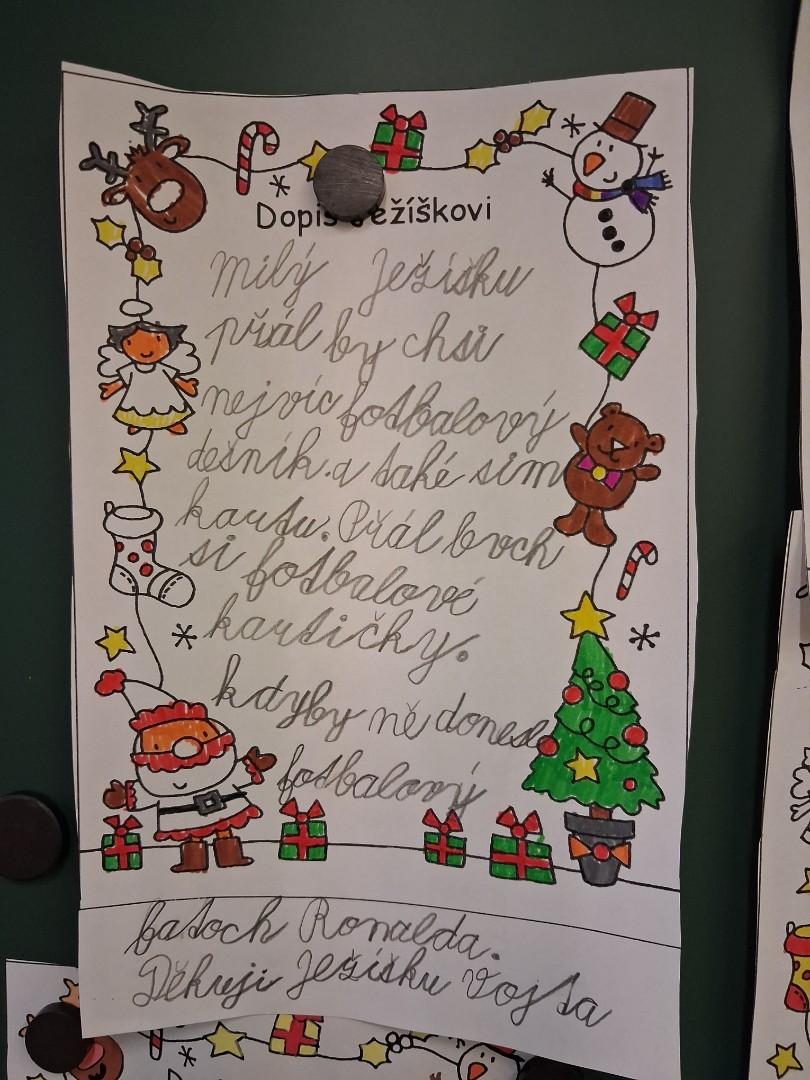 Dopis Ježíškovi
Milý Ježíšku
přál by chsi
nejvíc fotbalový
dešník. a také sim
kartu. Přál bvch
si fotbalové
kartičky.
kdyby ně donesl
fotbalový
batoch Ronalda.
Děkuji Ježíšku Vojta